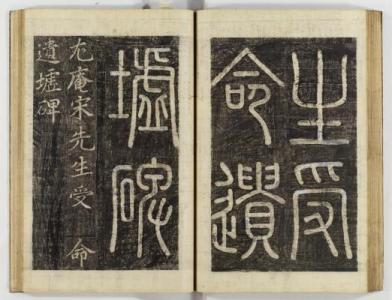 生受
命遺
墟碑
尤庵宋先生受 命
遺墟碑